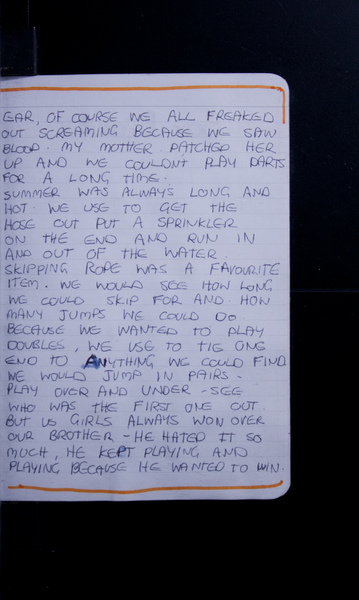 EAR, OF COURSE WE ALL FREAKED
OUT SCREAMING BECAUSE WE SAW
BLOOD. MY MOTHER PATCHED HER
UP AND WE COULDN'T PLAY DARTS
FOR A LONG TIME.
SUMMER WAS ALWAYS LONG AND
HOT. WE USE TO GET THE
HOSE OUT PUT A SPRINKLER
ON THE END AND RUN IN
AND OUT OF THE WATER.
SKIPPING ROPE WAS A FAVOURITE
ITEM. WE WOULD SEE HOW LONG
WE COULD SKIP FOR AND HOW
MANY JUMPS WE COULD DO
BECAUSE WE WANTED TO PLAY
DOUBLES, WE USE TO TIE ONE
END TO ANYTHING WE COULD FIND
WE WOULD JUMP IN PAIRS -
PLAY OVER AND UNDER - SEE
WHO WAS THE FIRST ONE OUT.
BUT US GIRLS ALWAYS WON OVER
OUR BROTHER - HE HATED IT SO
MUCH, HE KEPT PLAYING AND
PLAYING BECAUSE HE WANTED TO WIN.